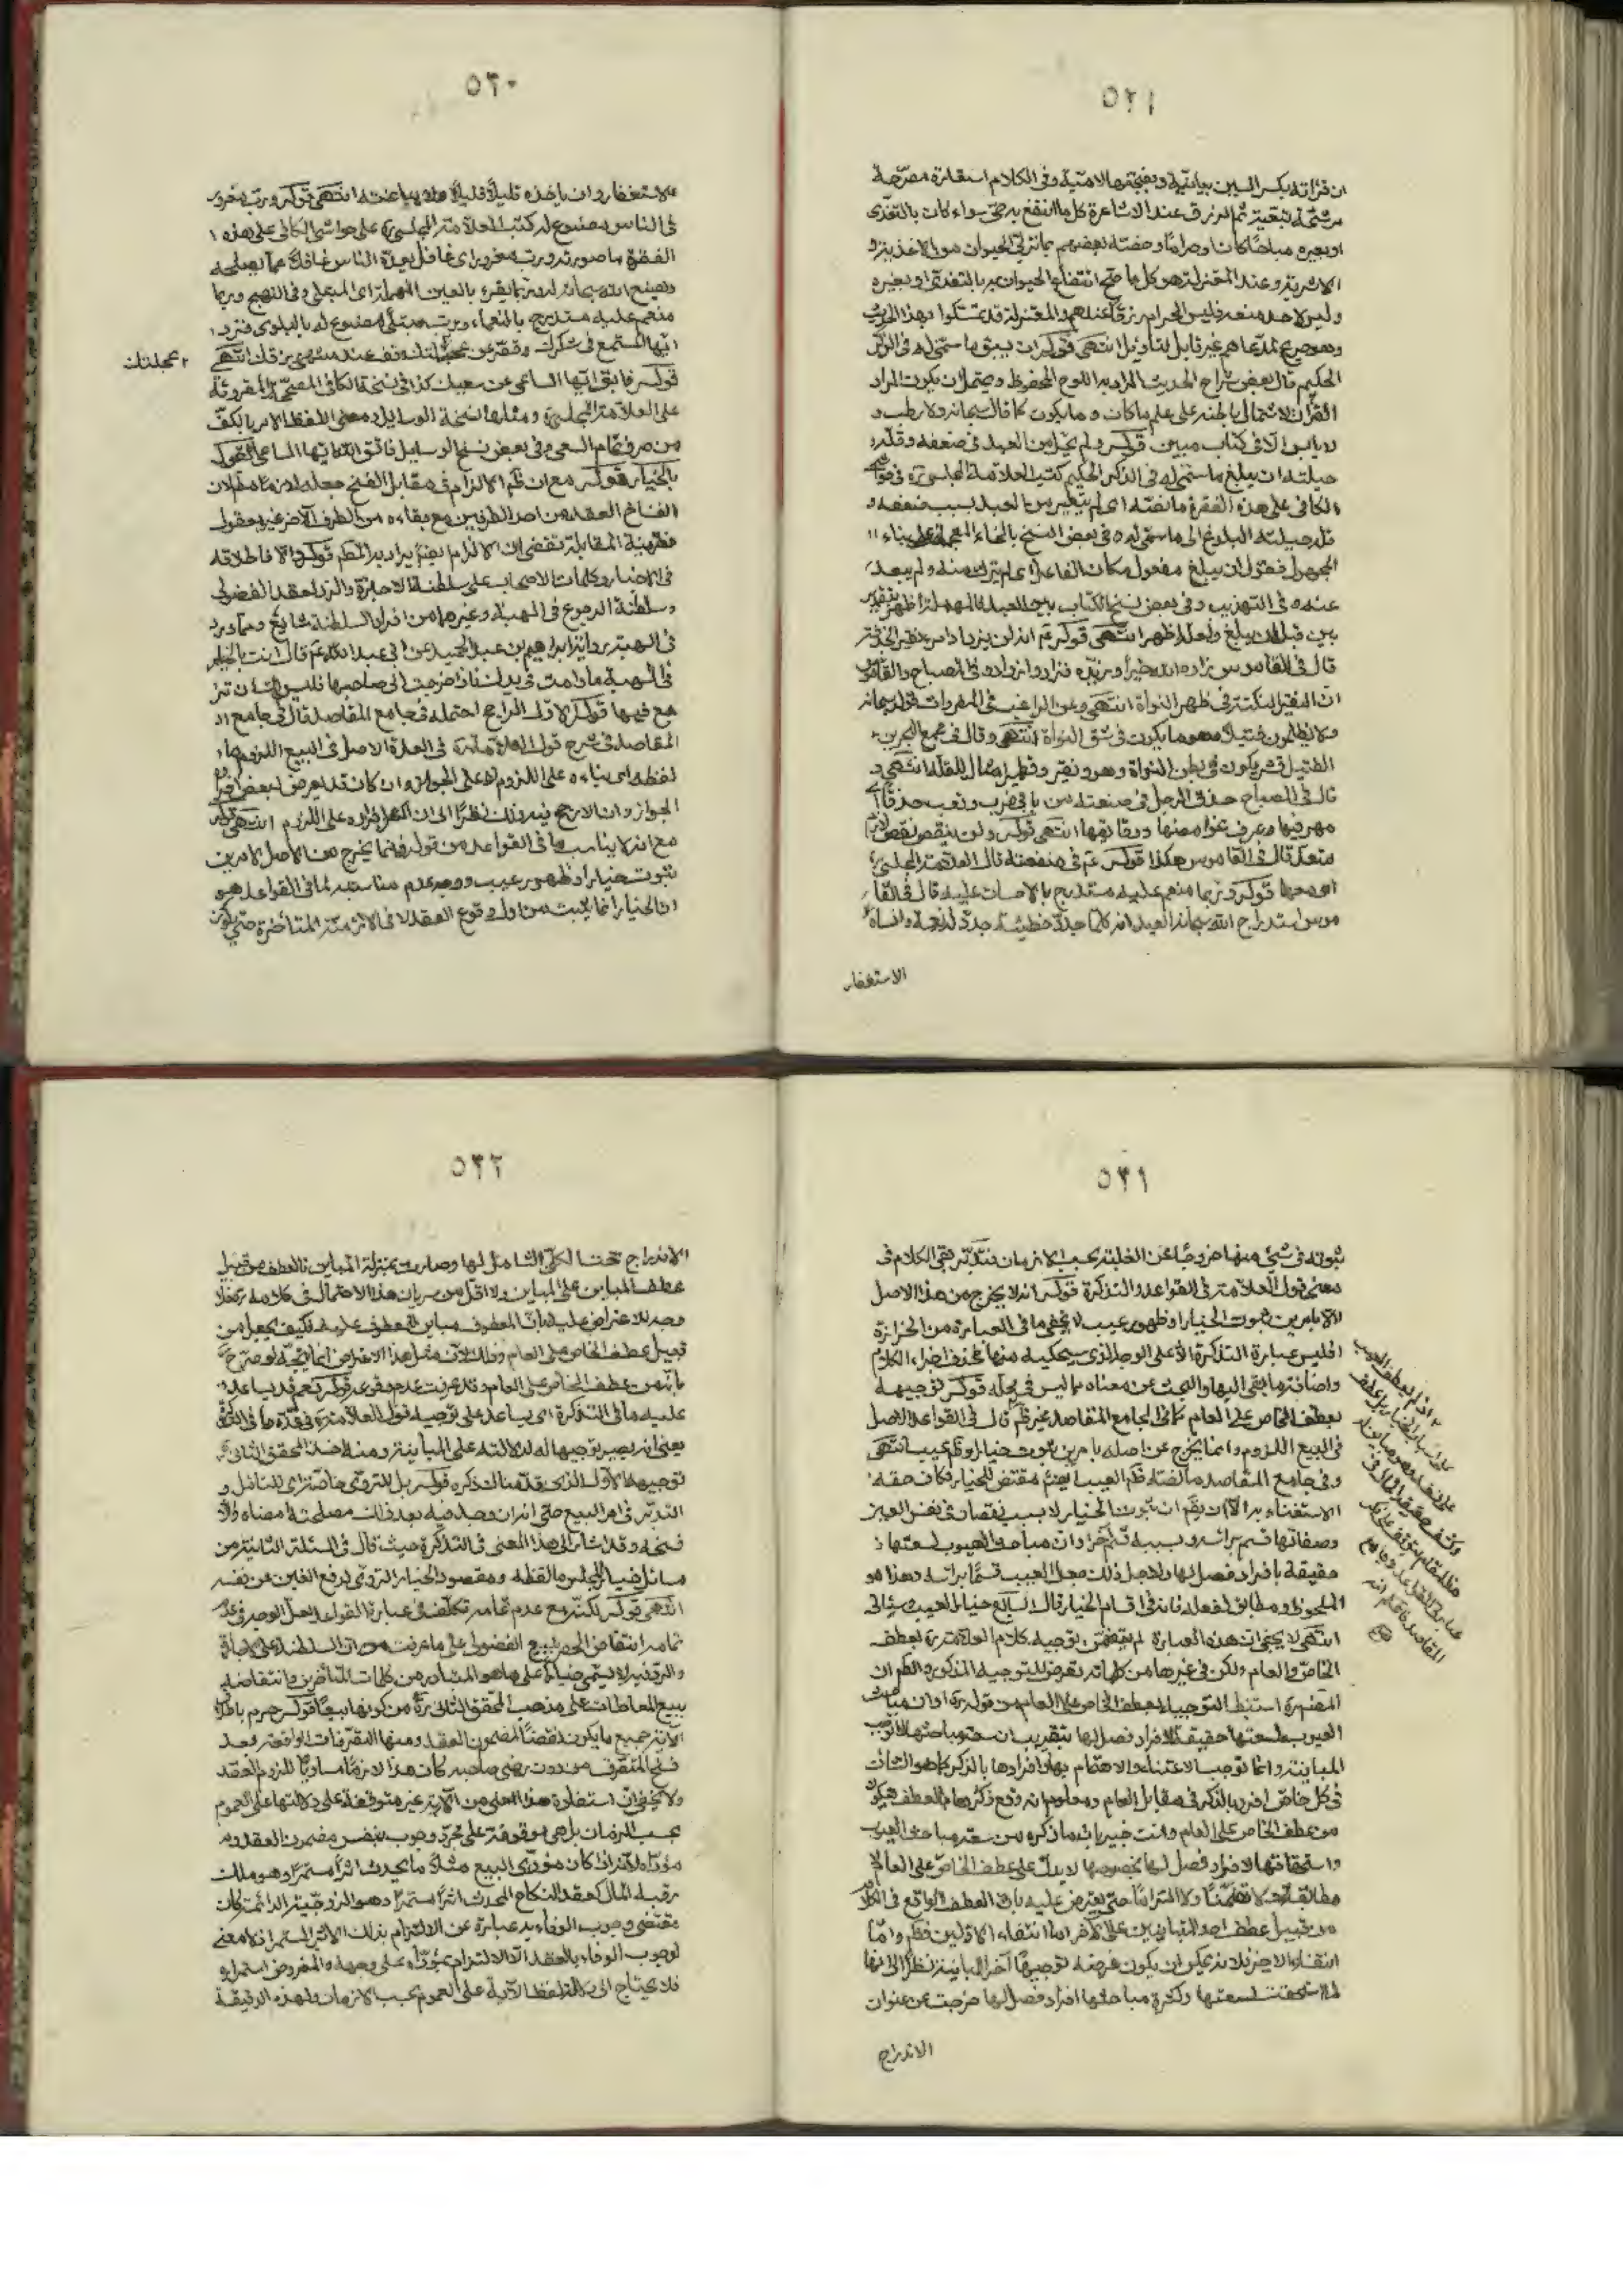 ٥٢٩
ان قرائته بكسر السين بيانية وبفتحها لامية وفى الكلام استعارة مصرحة
مرشحة ثم الرزق عند الاشاعرة كل ما انتفع به حى سواء كان بالتغذى
او بغيره مباحا كان او حراما وخصه بعضهم بما تربى به الحيوان من الاغذية و
الاشربة وعند المعتزلة هو كل ما صح انتفاع الحيوان به بالتغذى او بغيره
وليس لاحد منعه فليس الحرام رزقا عندهم والمعتزلة قد تمسكوا بهذا الحديث
وهو صريح فى مدعاهم غير قابل للتأويل انتهى قوله ان يسبق ما سمى له فى الذكر
الحكيم قال بعض شراح الحديث المراد به اللوح المحفوظ ويحتمل ان يكون المراد
القرآن لاشتمال باطنه على علم ما كان وما يكون كما قال سبحانه ولا رطب و
لا يابس الا فى كتاب مبين قوله ولم يحل من العبد فى ضعفه وقلة
حيلته ان يبلغ ما سمى له فى الذكر الحكيم كتب العلامة المجلسى ره فى حواشى
الكافى على هذه الفقرة ما نصه اى لم يتغير من العبد بسبب ضعفه و
قلة حيلته البلوغ الى ما سمى له وفى بعض النسخ بالخاء المعجمة على بناء
المجهول فقوله ان يبلغ مفعول مكان الفاعل اى لم يترك منه ولم يبعد
عنه وفى التهذيب وفى بعض نسخ الكتاب بين العبد
بين قبل ان يبلغ ولعله اظهر انتهى قوله ع انه لن يزداد امرء نقيرا بحذقه
قال فى القاموس زاده الله خيرا وزيده فزاد وازداد وفى المصباح والقاموس
ان النقير النكتة فى ظهر النواة انتهى وعن الراغب فى المفردات قوله سبحانه
ولا يظلمون فتيلا هو ما يكون فى شق النواة انتهى وقال فى مجمع البحرين
الفتيل قشر يكون فى بطن النواة وهو ونقير وقطمير امثال للقلة انتهى و
قال فى المصباح حذق الرجل فى صنعته من بابى ضرب وتعب حذقا
مهر فيها وعرف غوامضها ودقائقها انتهى قوله ولن ينقص نقص لازم
متعد قال فى القاموس هكذا قوله ع فى منفعته قال العلامة المجلسى
اى معها قوله وربما منعم عليه مستدرج بالاحسان عليه قال فى القا
موس استدراج الله سبحانه العبد انه كلما جدد خطيئة جدد له نعمة وانساه
الاستغفار
٥٣٠
الاستغفار وان ياخذه قليلا قليلا ولا يباغته انتهى قوله ورب مغرور
فى الناس مصنوع له كتب العلامة المجلسى ره على حواشى الكافى على هذه
الفقرة ما صورته ورب مغرور اى غافل يعده الناس غافلا عما يصلحه
ويصنع الله سبحانه له وربما يقرء بالعين المهملة اى المبتلى وفى النهج وربما
منعم عليه مستدرج بالنعماء ورب مبتلى مصنوع له بالبلوى فزد
ايها المستمع فى شكرك وقصر من عجلتك وقف عند منتهى رزقك انتهى
٢ عجلتك
قوله فابق ايها الساعى من سعيك كذا فى نسخة الكافى المصححة المقروئة
على العلامة المجلسى ره ومثلها نسخة الوسايل ومعنى اللفظ الامر بالكف
من صرف تمام السعى وفى بعض نسخ الوسايل فاتق الله ايها الساعى القول
بالخيار قوله مع ان ظم الالزام فى مقابل الفسخ جعله لازما مطلقا لان
الفاسخ العقد من احد الطرفين مع بقائه من الطرف الآخر غير معقول
فقرينة المقابلة تقتضى ان الالزام ايضم يراد به المطم قوله والا فاطلاقه
فى الاخبار وكلمات الاصحاب على سلطنة الاجازة والرد لعقد الفضولى
وسلطنة الرجوع فى الهبة وغيرهما من افراد السلطنة شايع ومما ورد
فى الهبة رواية ابراهيم بن عبد الحميد عن ابى عبد الله ع قال انت بالخيار
فى الهبة ما دامت فى يدك فاذا خرجت الى صاحبها فليس لك ان تر
جع فيها قوله الاول الراجح احتمله فى جامع المقاصد قال فى جامع
المقاصد فى شرح قول العلامة ره فى الاصل فى البيع اللزوم
لفظه اى بناءه على اللزوم لا على الجواز وان كان قد يعرض لبعض افراده
الجواز وان الارجح فيه ذلك نظرا الى ان اكثر افراده على اللزوم انتهى قوله
مع انه لا يناسب ما فى القواعد من قوله وانما يخرج من الاصل لامرين
ثبوت خيار او ظهور عيب ووجه عدم مناسبته لما فى القواعد هو
ان الخيار انما يثبت من اول وقوع العقد لا فى الازمنة المتأخرة حتى يكون
٥٣١
ثبوته فى شئ منها خروجا عن الغلبة بحسب الازمان فتدبر بقى الكلام فى
معنى قول العلامة فى القواعد والتذكرة قوله انه لا يخرج من هذا الاصل
الا بامرين ثبوت الخيار او ظهور عيب لا يخفى ما فى العبارة من الحزازة
اذ ليس عبارة التذكرة الا على الوجه الذى سيحكيه منها فحذف اجزاء الكلام
واضافة ما بقى اليها والبحث عن معناه مما ليس فى محله قوله توجيهه
بعطف الخاص على العام كما فى جامع المقاصد غير ظم قال فى القواعد الاصل
فى البيع اللزوم وانما يخرج عن اصله بامرين ثبوت خيار او ظهور عيب انتهى
وفى جامع المقاصد ما لفظه ظم العيب ايضم مقتض للخيار فكان حقه
الاستغناء به الا ان يقم ان ثبوت الخيار لا بسبب نقصان فى نفس العين
وصفاتها قسم برأسه وبسببه قسم آخر او ان مباحث العيوب لسعتها
حقيقة بافراد فصل لها ولاجل ذلك جعل العيب قسما برأسه وهذا هو
الملحوظ ومطابق لفعله فانه فى اقسام الخيار قال السابع خيار العيب وسيأتى
انتهى لا يخفى ان هذه العبارة لم يتضمن توجيه كلام العلامة ره بعطف
الخاص على العام ولكن فى غيرها من كلماته تعرض للتوجيه المذكور والظم ان
المصم ره استنبط التوجيه بعطف الخاص على العام من قوله ره او ان مباحث
العيوب لسعتها حقيقة لافراد فصل لها بتقريب ان سعة مباحثها لا توجب
المباينة وانما توجب الاعتناء والاهتمام بها وافرادها بالذكر كما هو الشان
فى كل خاص افرد بالذكر فى مقابل العام ومعلوم انه وقع ذكرها مع العطف فيكون
من عطف الخاص على العام وانت خبير بان ما ذكره من سعة مباحث العيوب
واستحقاقها لافراد فصل لها بخصوصها لا يدل على عطف الخاص على العام لا
مطابقة ولا تضمنا ولا التزاما حتى يعترض عليه بان العطف الواقع فى الكلام
من قبيل عطف احد المتباينين على الآخر اما انتفاء الاولين فظم واما
انتفاء الاخير فلانه يمكن ان يكون غرضه توجيها آخر المباينة نظرا الى انها
لما استحقت لسعتها وكثرة مباحثها افراد فصل لها خرجت عن عنوان
الاندراج
٥٣٢
الاندراج تحت الكلى الشامل لها وصارت بمنزلة المباين فالعطف من قبيل
عطف المباين على المباين ولا اقل من سريان هذا الاحتمال فى كلامه ره فلا
وجه للاعتراض عليه بان المعطوف مباين للمعطوف عليه فكيف يجعل من
قبيل عطف الخاص على العام وذلك لان مثل هذا الاعتراض انما يتجه لو صرح
بانه من عطف الخاص على العام وقد عرفت عدم وقوعه قوله نعم قد يساعد
عليه ما فى التذكرة اى يساعد على توجيه قول العلامة ره
يعنى انه يصير توجيها له لدلالته على المباينة ومنه اخذ المحقق الثانى ره
توجيهه الاول الذى قدمنا لك ذكره قوله بل للتروى خاصة اى للتأمل و
التدبر فى امر البيع حتى انه ان وجد فيه بعد ذلك مصلحة امضاه والا
فسخه وقد اشار الى هذا المعنى فى التذكرة حيث قال فى المسئلة الثانية من
مسائل خيار المجلس ما لفظه ومقصود الخيار التروى لدفع الغبن عن نفسه
انتهى قوله لكنه مع عدم تمامه تكلف فى عبارة القواعد لعل الوجه فى عدم
تمامه انتقاض الحصر ببيع الفضولى على ما عرفت من ان السلطنة على الاجازة
والرد فيه لا يسمى خيارا على ما هو المتبادر من كلمات المتأخرين وانتقاضه
ببيع المعاطات على مذهب المحقق الثانى ره من كونها بيعا قوله حرم باطلاق
الآية جميع ما يكون نقضا لمضمون العقد ومنها التصرفات الواقعة بعد
فسخ المتصرف من دون رضى صاحبه كان هذا لازما مساويا للزوم العقد
ولا يخفى ان استفادة هذا المعنى من الآية غير متوقفة على دلالتها على العموم
بحسب الزمان بل هى موقوفة على مجرد وجوب بنفس مضمون العقد و
مؤداه لانه اذا كان مؤدى البيع مثلا ما يحدث اثرا مستمرا وهو ملك
رقبة المال كعقد النكاح المحدث اثرا مستمرا وهو الزوجية الدائمة كان
مقتضى وجوب الوفاء به عبارة عن الالتزام بذلك الاثر المستمر اذ لا معنى
لوجوب الوفاء بالعقد الا الالتزام بمؤداه على وجهه والمفروض استمراره
فلا يحتاج الى دلالة لفظ الآية على العموم بحسب الازمان ولهذه الدقيقة